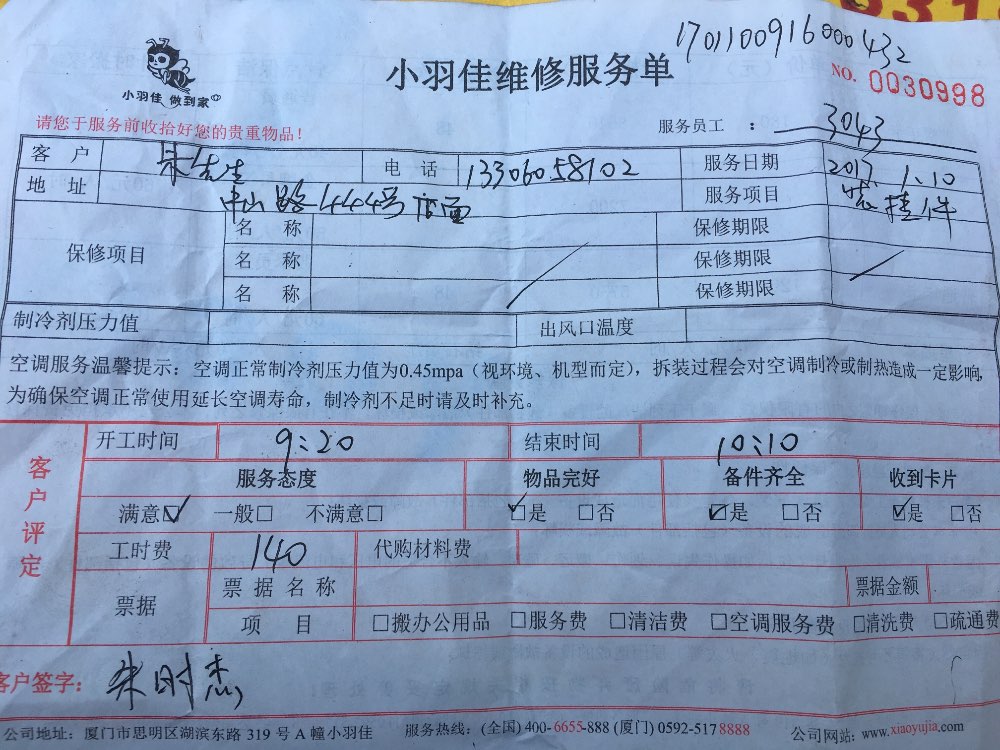 1701100916000432
小羽佳维修服务单
NO. 0030998
小羽佳 做到家
请您于服务前收拾好您的贵重物品!
服务员工 : 3043
客 户 朱先生 电 话 13306058102 服务日期 2017.1.10
地 址 中山路444号店面 服务项目 装挂件
保修项目 名 称 保修期限
名 称 保修期限
名 称 保修期限
制冷剂压力值 出风口温度
空调服务温馨提示:空调正常制冷剂压力值为0.45mpa(视环境、机型而定),拆装过程会对空调制冷或制热造成一定影响,
为确保空调正常使用延长空调寿命,制冷剂不足时请及时补充。
客户评定
开工时间 9:20 结束时间 10:10
服务态度 物品完好 备件齐全 收到卡片
满意☑ 一般□ 不满意□ ☑是 □否 ☑是 □否 ☑是 □否
工时费 140 代购材料费
票据 票 据 名 称 票据金额
项 目 □搬办公用品 □服务费 □清洁费 □空调服务费 □清洗费 □疏通费
客户签字: 朱时杰
公司地址:厦门市思明区湖滨东路 319 号 A 幢小羽佳 服务热线:(全国) 400-6655-888 (厦门) 0592-5178888 公司网站:www.xiaoyujia.com